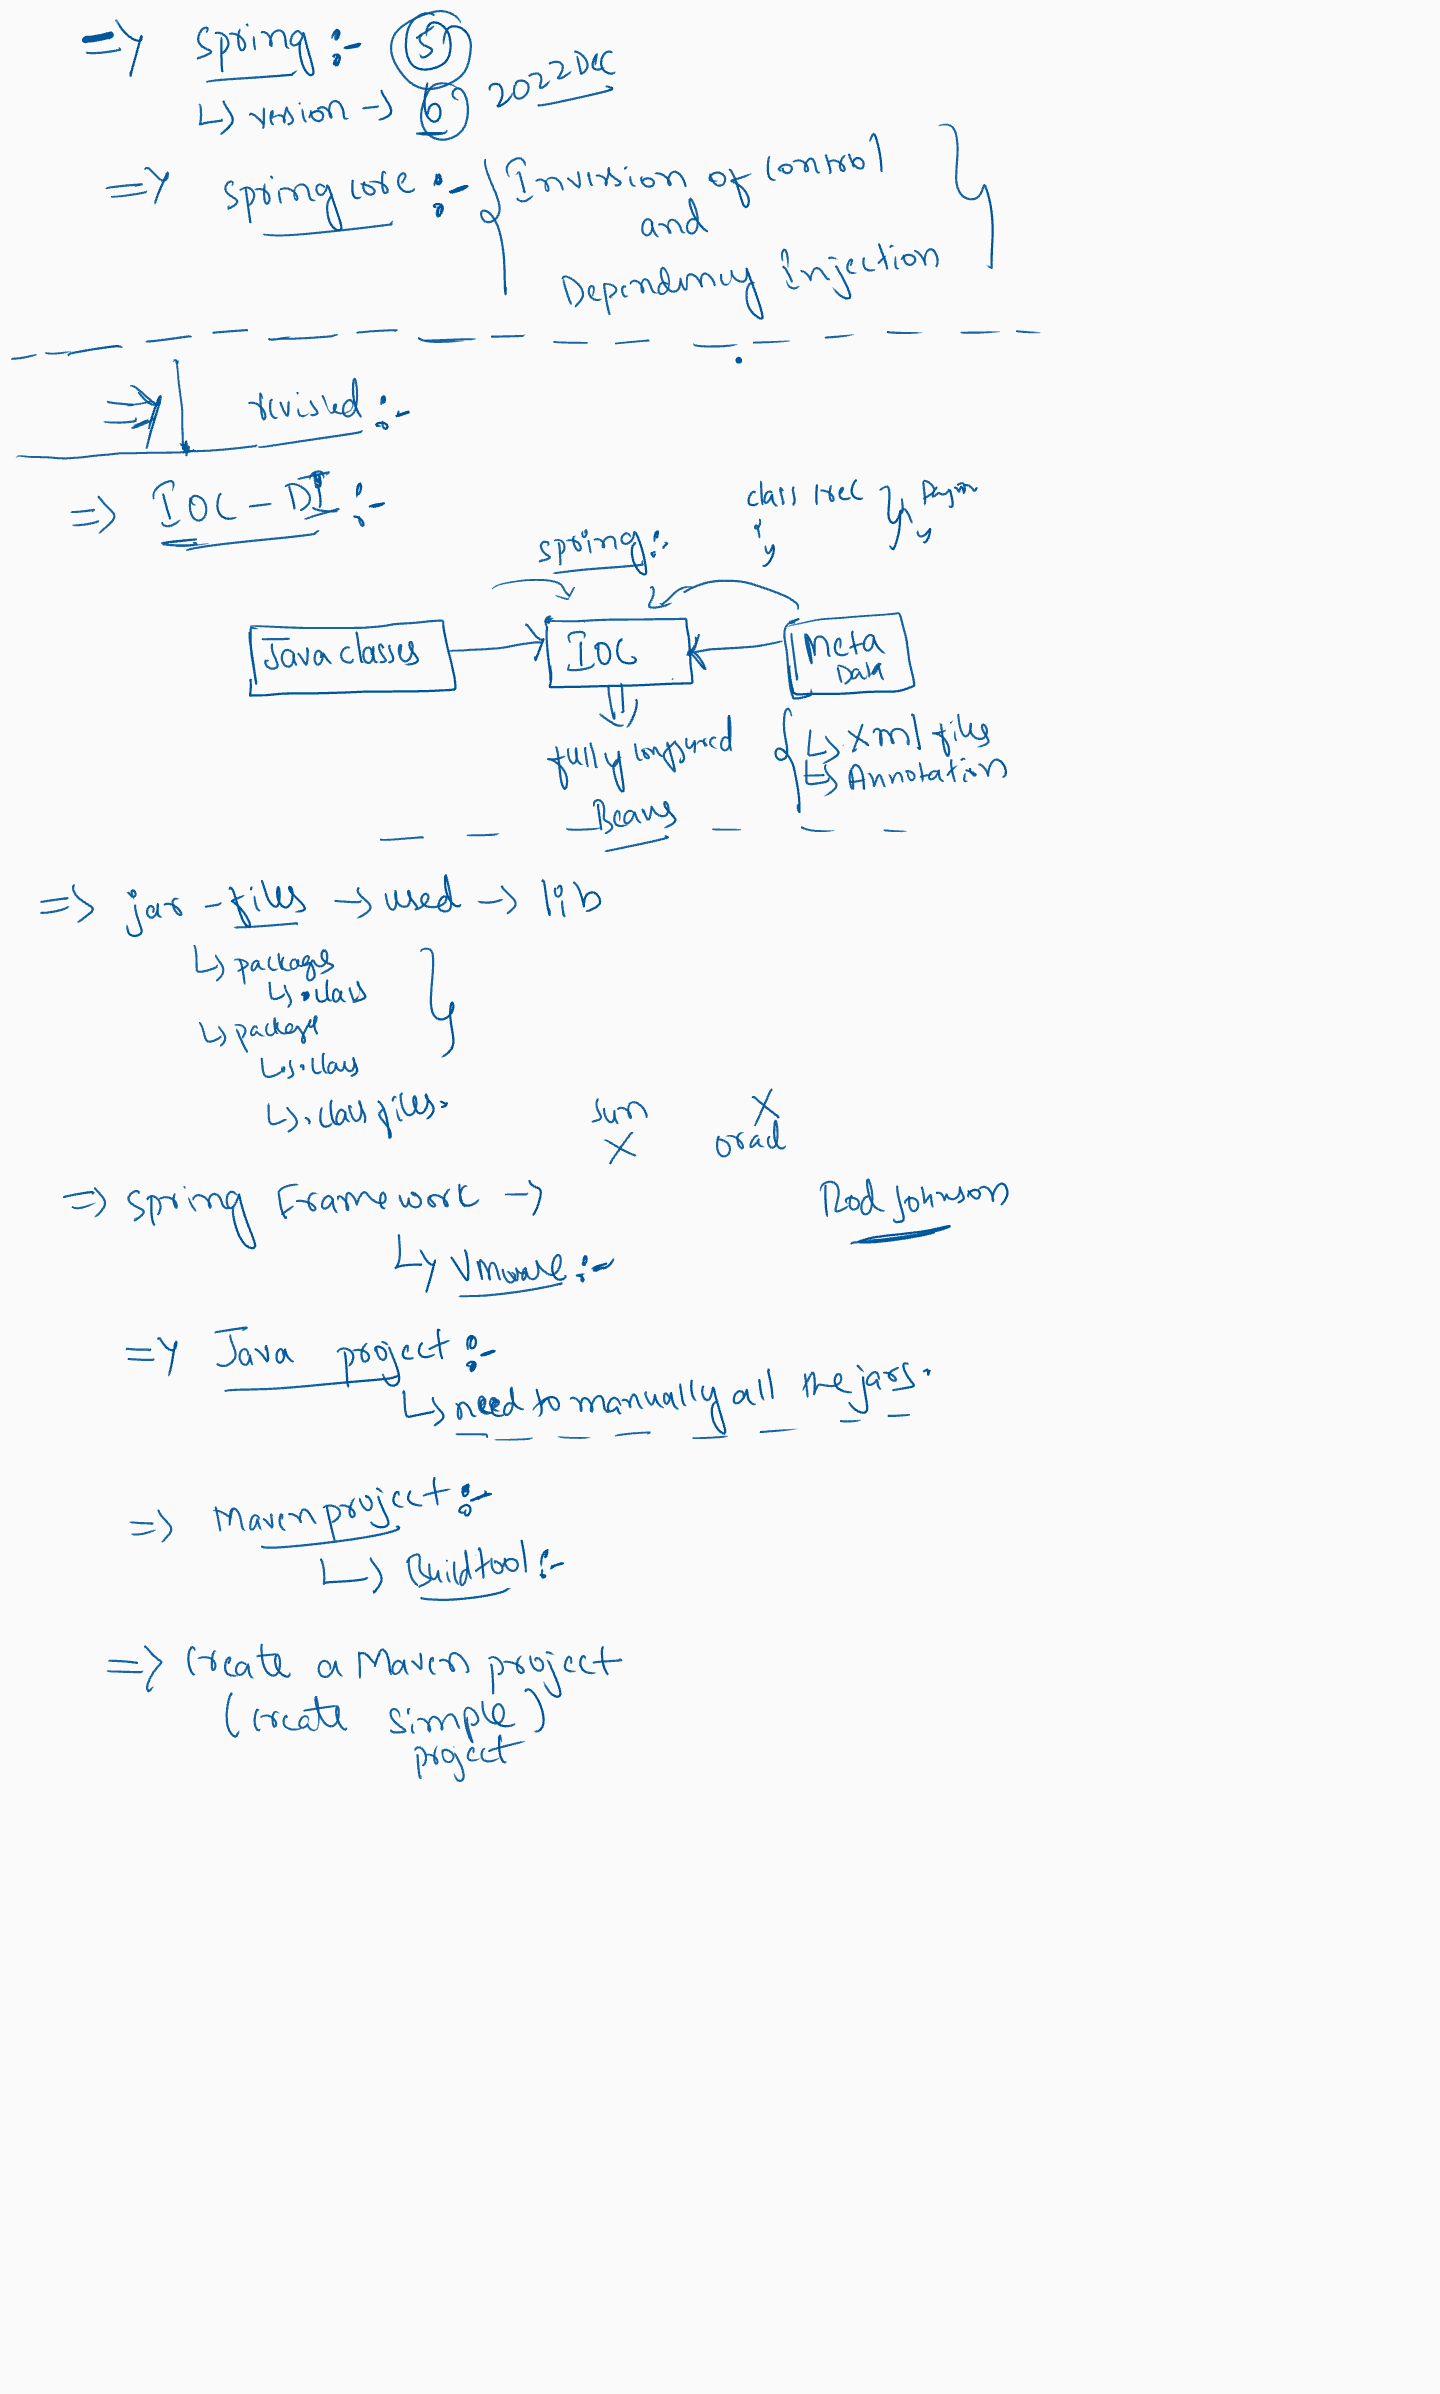 => Spring :- (5)
↳ version -> (6) 2022 Dec
=> Spring core :- { Inversion of Control
and
Dependency Injection }
=> revised :-
=> IOC - DI :-
class
Spring :-
Java classes
IOC
Meta
Data
fully configured
Beans
↳ Xml files
↳ Annotation
=> jar - files -> used -> lib
↳ packages
↳ .class
↳ package
↳ .class
↳ .class files.
Sun X
X
=> Spring Framework ->
Rod Johnson
↳ Vmware :-
=> Java project :-
↳ need to manually all the jars.
=> Maven project :-
↳ Build tool :-
=> Create a Maven project
(create simple)
project